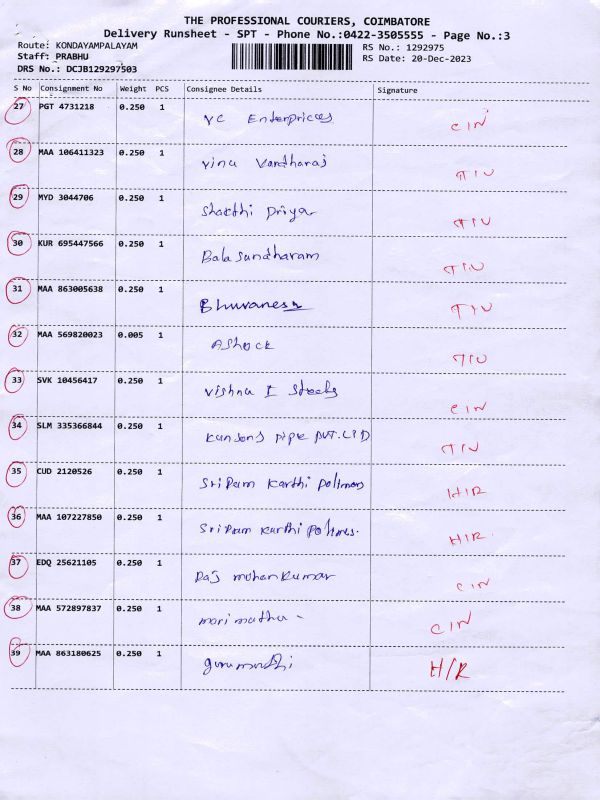 THE PROFESSIONAL COURIERS, COIMBATORE
Delivery Runsheet - SPT - Phone No.:0422-3505555 - Page No.:3
Route: KONDAYAMPALAYAM RS No.: 1292975
Staff: PRABHU RS Date: 20-Dec-2023
DRS No.: DCJB129297503
S No Consignment No Weight PCS Consignee Details Signature
27 PGT 4731218 0.250 1 VC Enterprices CIN
28 MAA 106411323 0.250 1 Vinu Vardharaj TIU
29 MYD 3044706 0.250 1 Shakthi Priya TIU
30 KUR 695447566 0.250 1 Bala Sundharam TIU
31 MAA 863005638 0.250 1 Bhuvanesh TIU
32 MAA 569820023 0.005 1 AShock TIU
33 SVK 10456417 0.250 1 Vishnu I Steels CIN
34 SLM 335366844 0.250 1 PIPE PVT.LTD TIU
35 CUD 2120526 0.250 1 SriRam Karthi Polimers H/R
36 MAA 107227850 0.250 1 SriRam Karthi Polimes. H/R.
37 EDQ 25621105 0.250 1 Raj mohankumar CIN
38 MAA 572897837 0.250 1 marimuthu - CIN
39 MAA 863180625 0.250 1 gurumurthi H/R